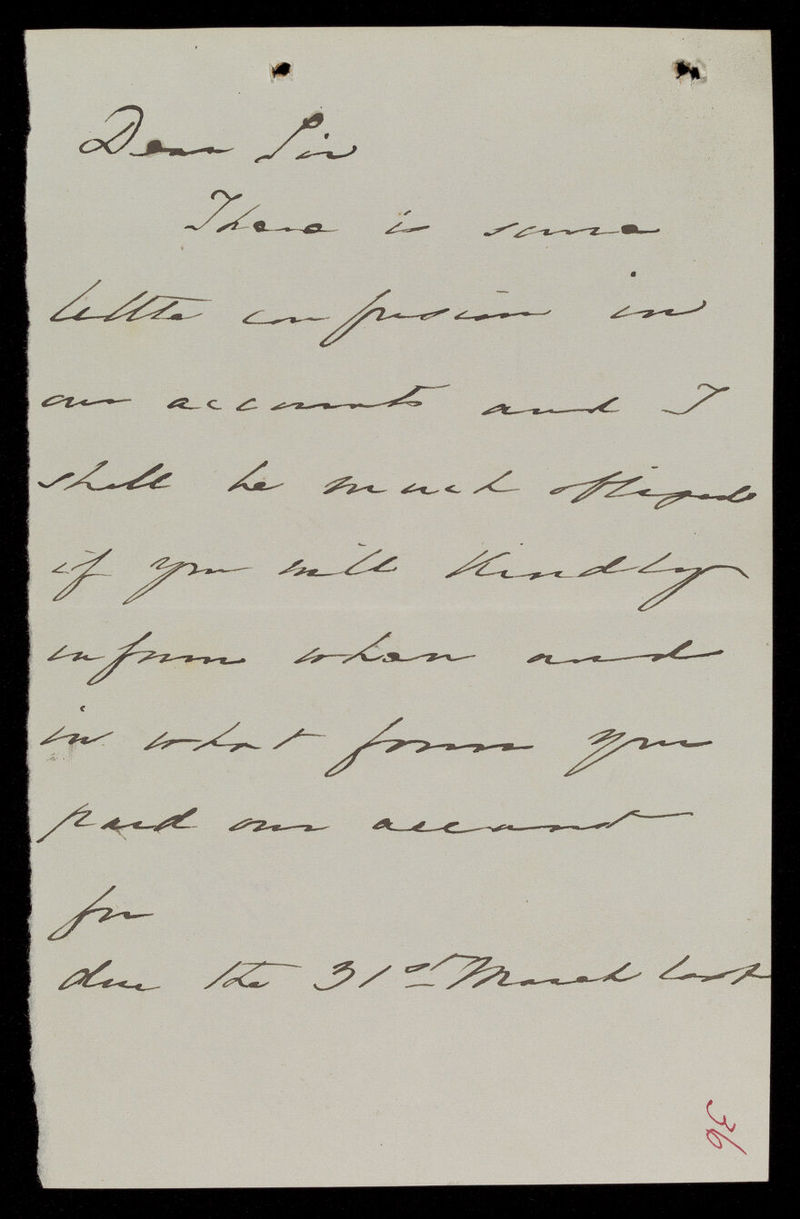 Dear Sir
There is some
little confusion in
our accounts and I
shall be much obliged
if you will kindly
inform when and
in what form you
paid our account
for
due the 31st March last
36